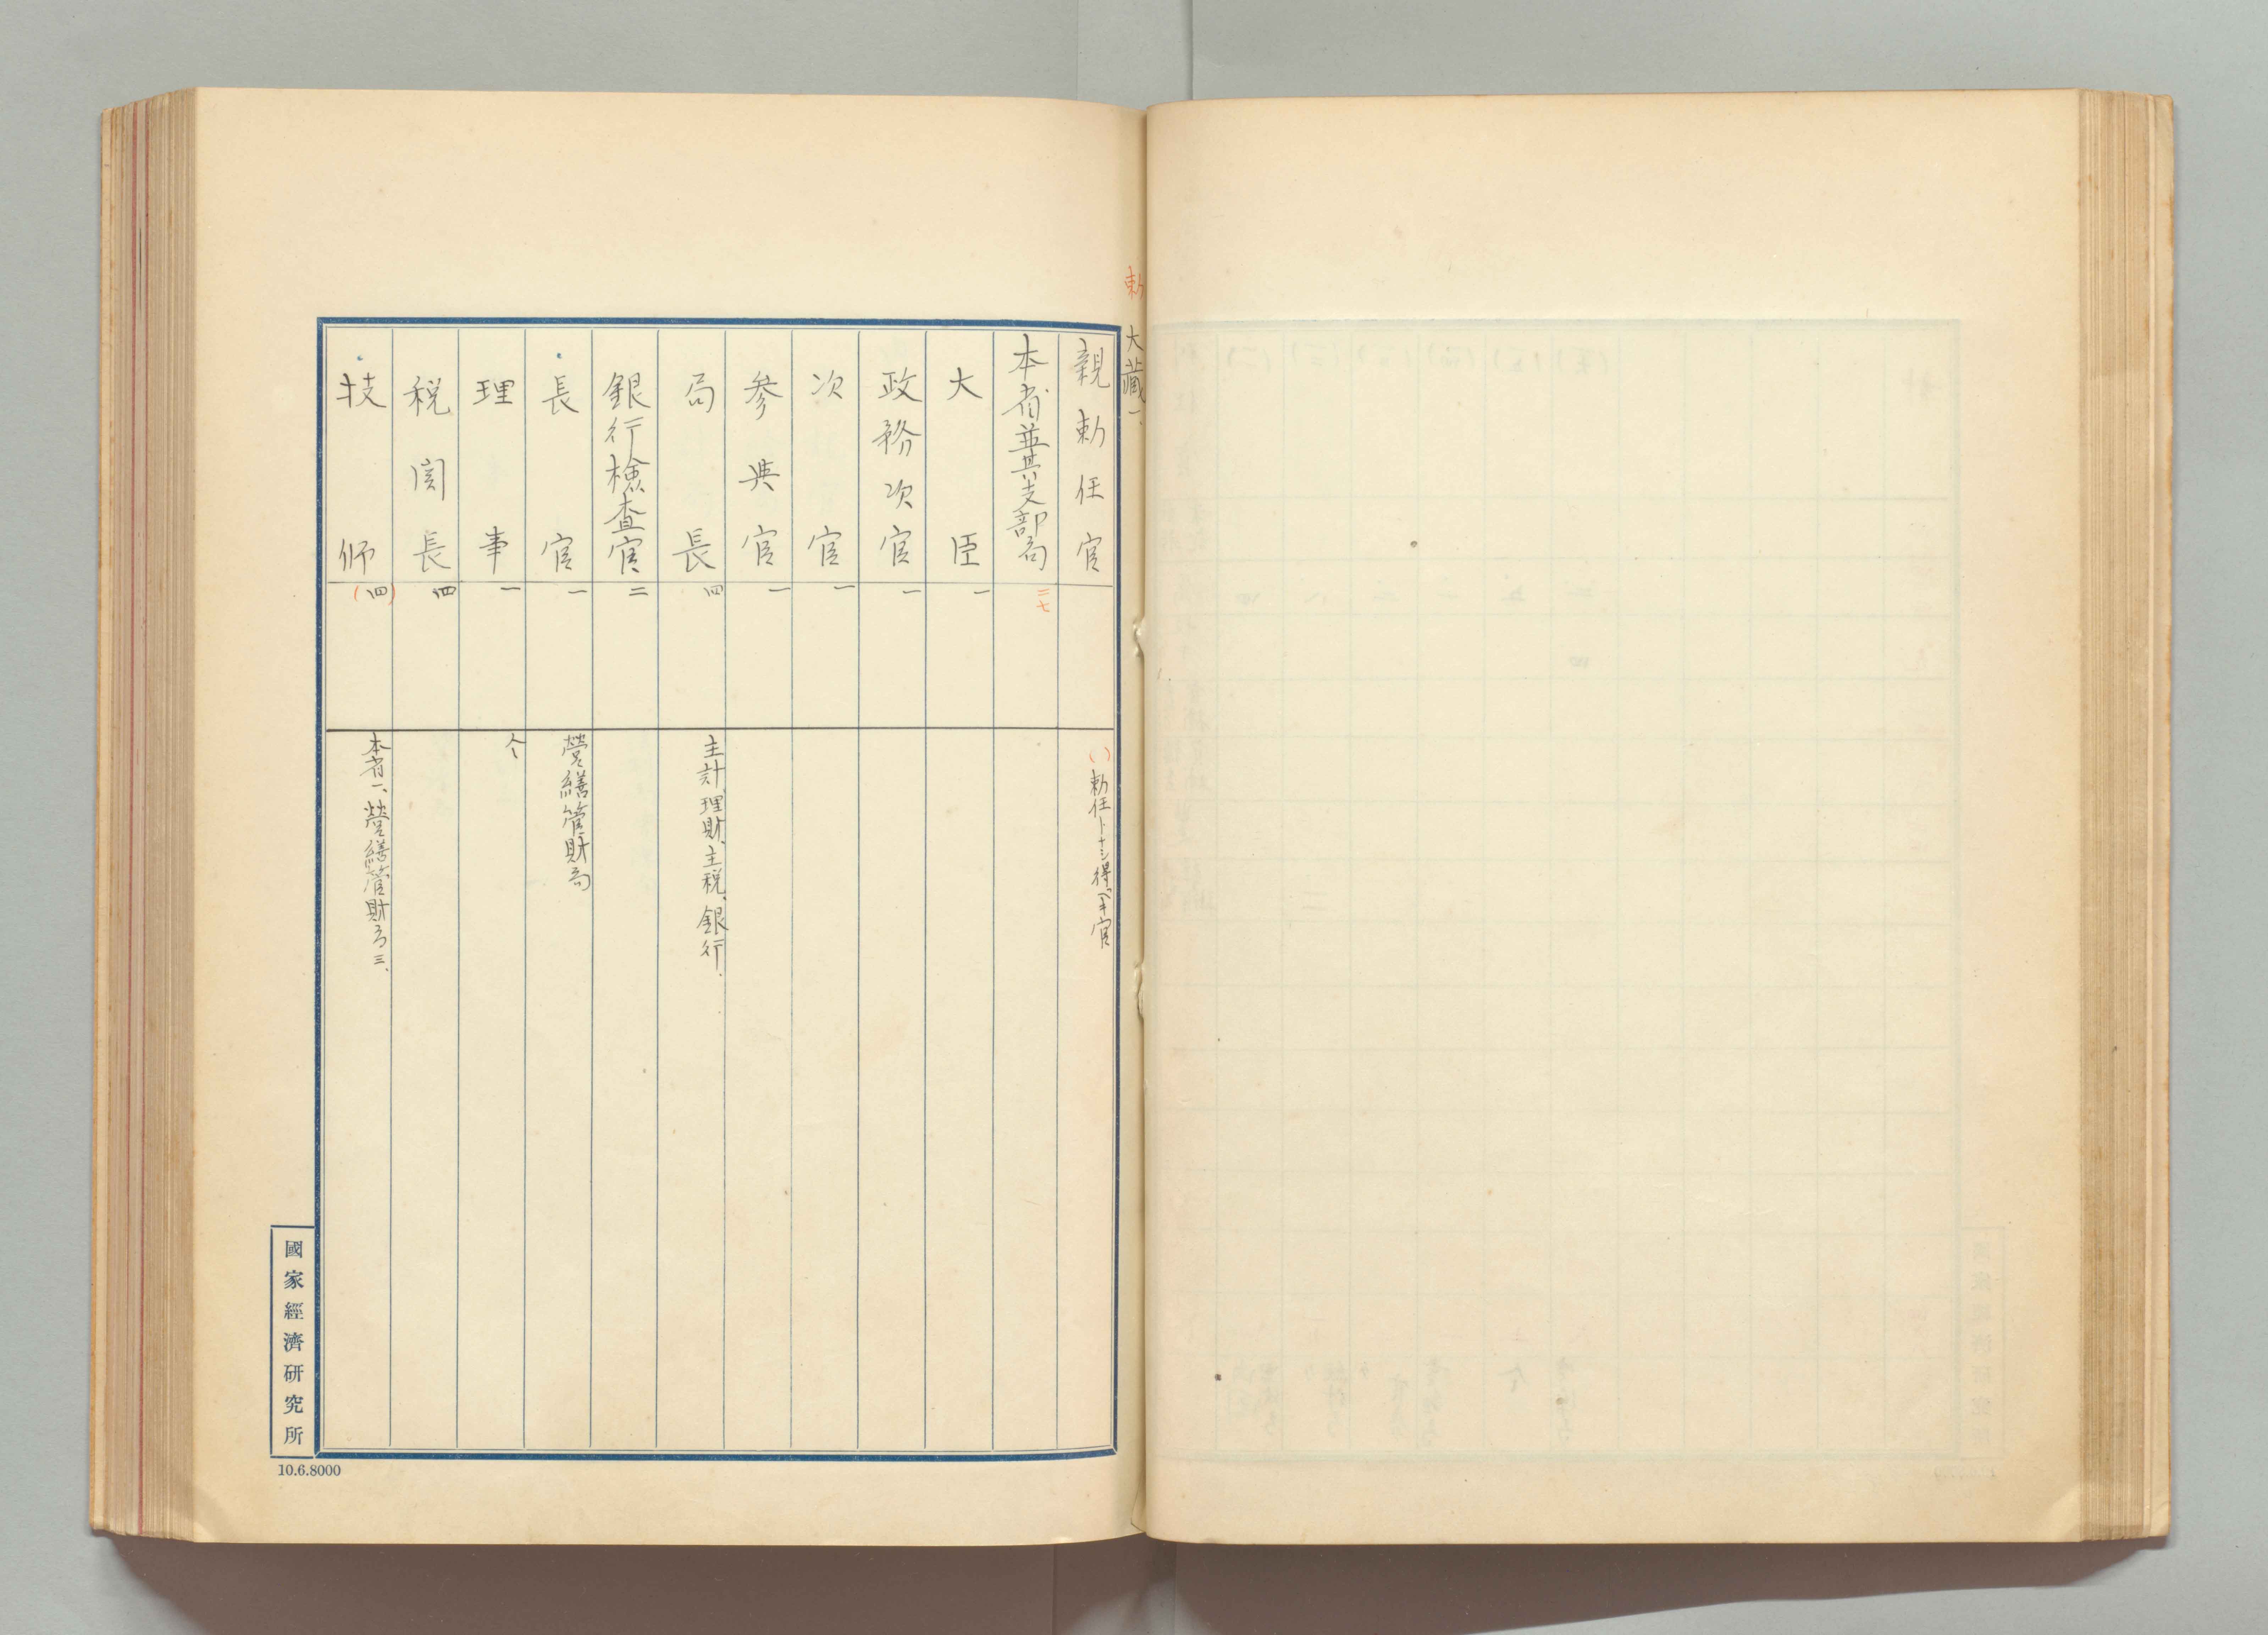 勅
大藏一、
親勅任官 ( )勅任トナシ得ベキ官
本省並其支部局 二七
大臣 一
政務次官 一
次官 一
参与官 一
局長 四 主計、理財、主税、銀行、
銀行検査官 二
長官 一 営繕管財局
理事 一 仝
税関長 四
技師 (四) 本省一、営繕管財局三、
國家經濟研究所
10.6.8000